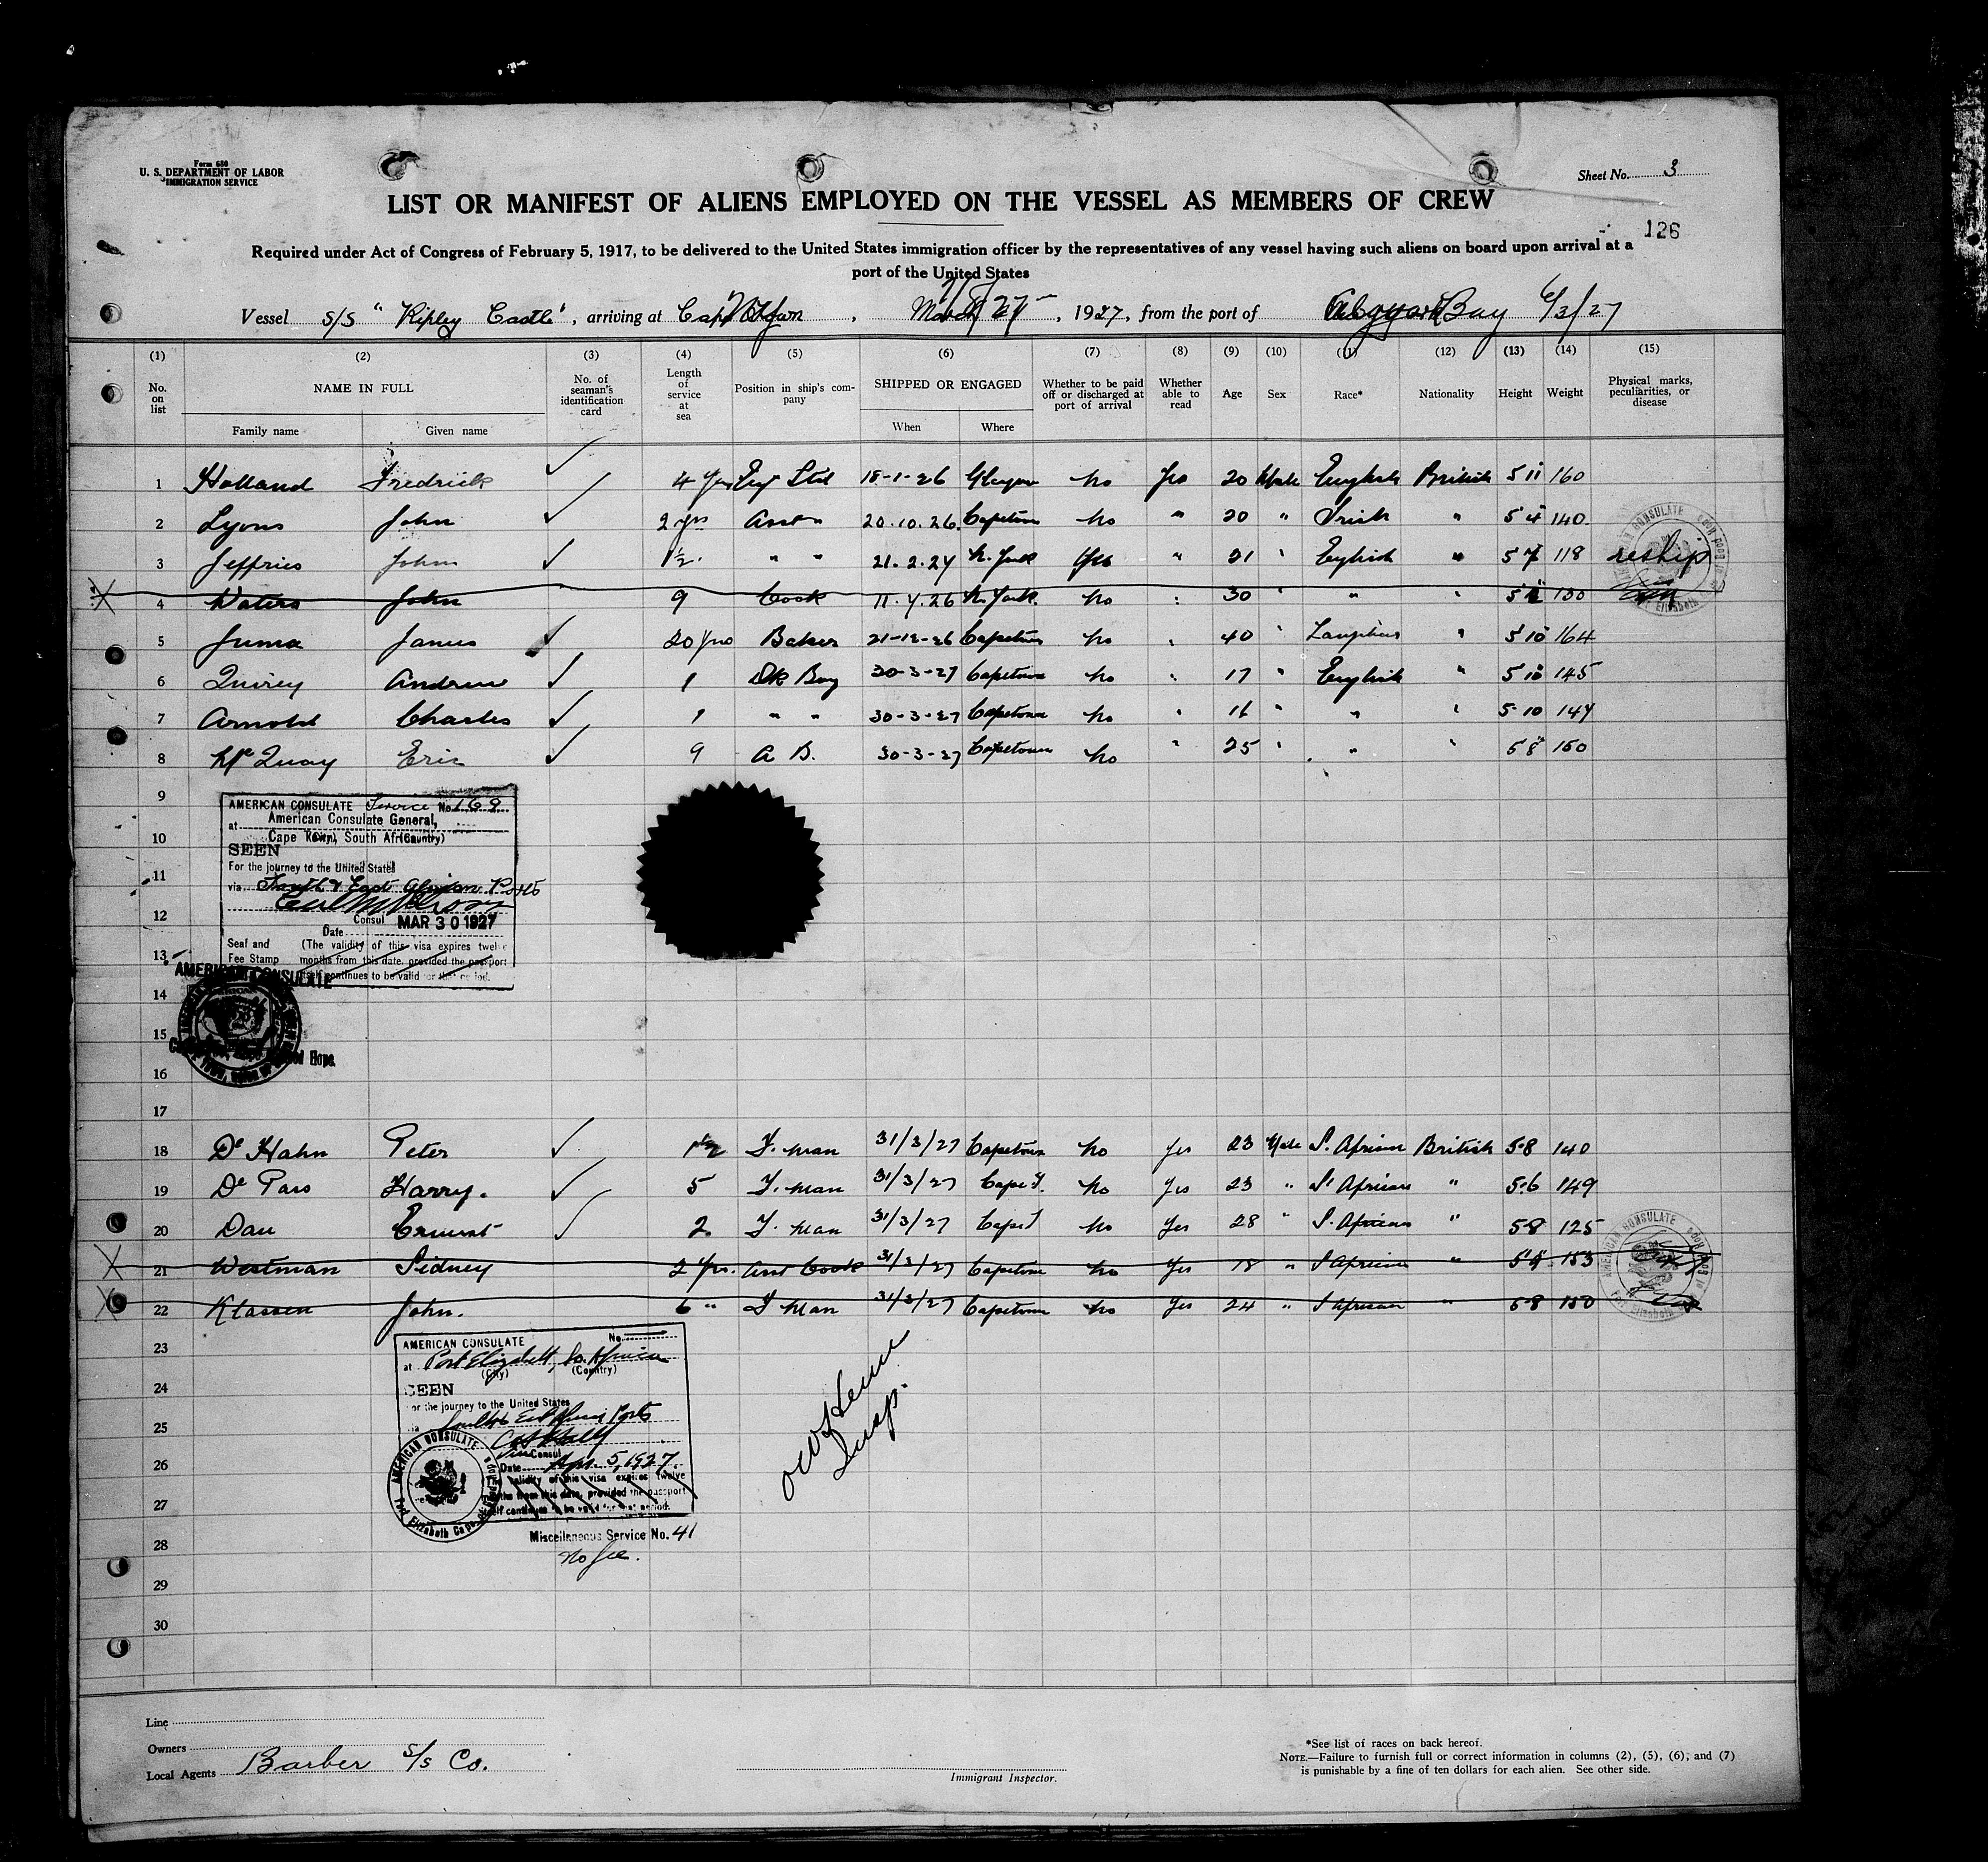 Form 680
U. S. DEPARTMENT OF LABOR
IMMIGRATION SERVICE
Sheet No. 3
LIST OR MANIFEST OF ALIENS EMPLOYED ON THE VESSEL AS MEMBERS OF CREW
126
Required under Act of Congress of February 5, 1917, to be delivered to the United States immigration officer by the representatives of any vessel having such aliens on board upon arrival at a
port of the United States
Vessel S/S "Ripley Castle", arriving at , March , 1927, from the port of Bay 6/3/27
(1) (2) (3) (4) (5) (6) (7) (8) (9) (10) (11) (12) (13) (14) (15)
No. on list
NAME IN FULL
Family name
Given name
No. of seaman's identification card
Length of service at sea
Position in ship's company
SHIPPED OR ENGAGED
When
Where
Whether to be paid off or discharged at port of arrival
Whether able to read
Age
Sex
Race*
Nationality
Height
Weight
Physical marks, peculiarities, or disease
1 Holland Fredrick 4 yrs 18-1-26 Glasgow No Yes 20 Male English British 5 11 160
2 Lyons John 2 yrs Asst " 20.10.26. Capetown No " 20 " Irish " 5 4 140
3 Jeffries John 1½ " " 21.2.27 N. York Yes " 21 " English " 5 7 118 reship
4 Waters John 9 Cook N. York. No " 30 " " " 130
5 Juma James 20 yrs Baker 21-12-26 Capetown No " 40 " " 5 10 164
6 Quirey Andrew 1 Dk Boy 30-3-27 Capetown No " 17 " English " 5 10 145
7 Arnold Charles 1 " " 30-3-27 Capetown No " 16 " " " 5-10 147
8 Mc Quay Eric 9 A B. 30-3-27 Capetown No " 25 " " " 5 8 150
9
AMERICAN CONSULATE Service No. 169
at American Consulate General,
10
Cape Town, South Africa
SEEN
For the journey to the United States
11
via South & East African Ports
12
Consul
Date MAR 30 1927
Seal and Fee Stamp
(The validity of this visa expires twelve
13
months from this date, provided the passport
itself continues to be valid for that period.
AMERICAN CONSULATE
14
15
Good Hope.
16
17
18 De Hahn Peter F. man 31/3/27 Capetown No Yes 23 Male S. African British 5-8 140
19 De Pass Harry. 5 F. man 31/3/27 Cape T. No Yes 23 " S. African " 5-6 149
20 Dau Ernest 2 F. man 31/3/27 Cape T No Yes 28 " S. African " 5-8 125
21 Westman Sidney 2 yrs. Asst Cook 31/3/27 Capetown No Yes 18 " S African " 153
22 Klassen John. 6 " F man 31/3/27 Capetown No Yes 24 " S African " 5-8 150
AMERICAN CONSULATE Port Elizabeth Cape of Good Hope
23
AMERICAN CONSULATE No.
at Port Elizabeth, So. Africa
(City) (Country)
24
SEEN
For the journey to the United States
25
via Ports
Vice Consul
26
Date Apr. 5, 1927.
validity of this visa expires twelve
months from this date, provided the passport
27
itself continues to be valid for that period.
AMERICAN CONSULATE Port Elizabeth Cape of Good Hope
Insp.
28
Miscellaneous Service No. 41
No fee.
29
30
Line
Owners
Local Agents Barber S/S Co.
Immigrant Inspector.
*See list of races on back hereof.
NOTE.—Failure to furnish full or correct information in columns (2), (5), (6), and (7)
is punishable by a fine of ten dollars for each alien. See other side.